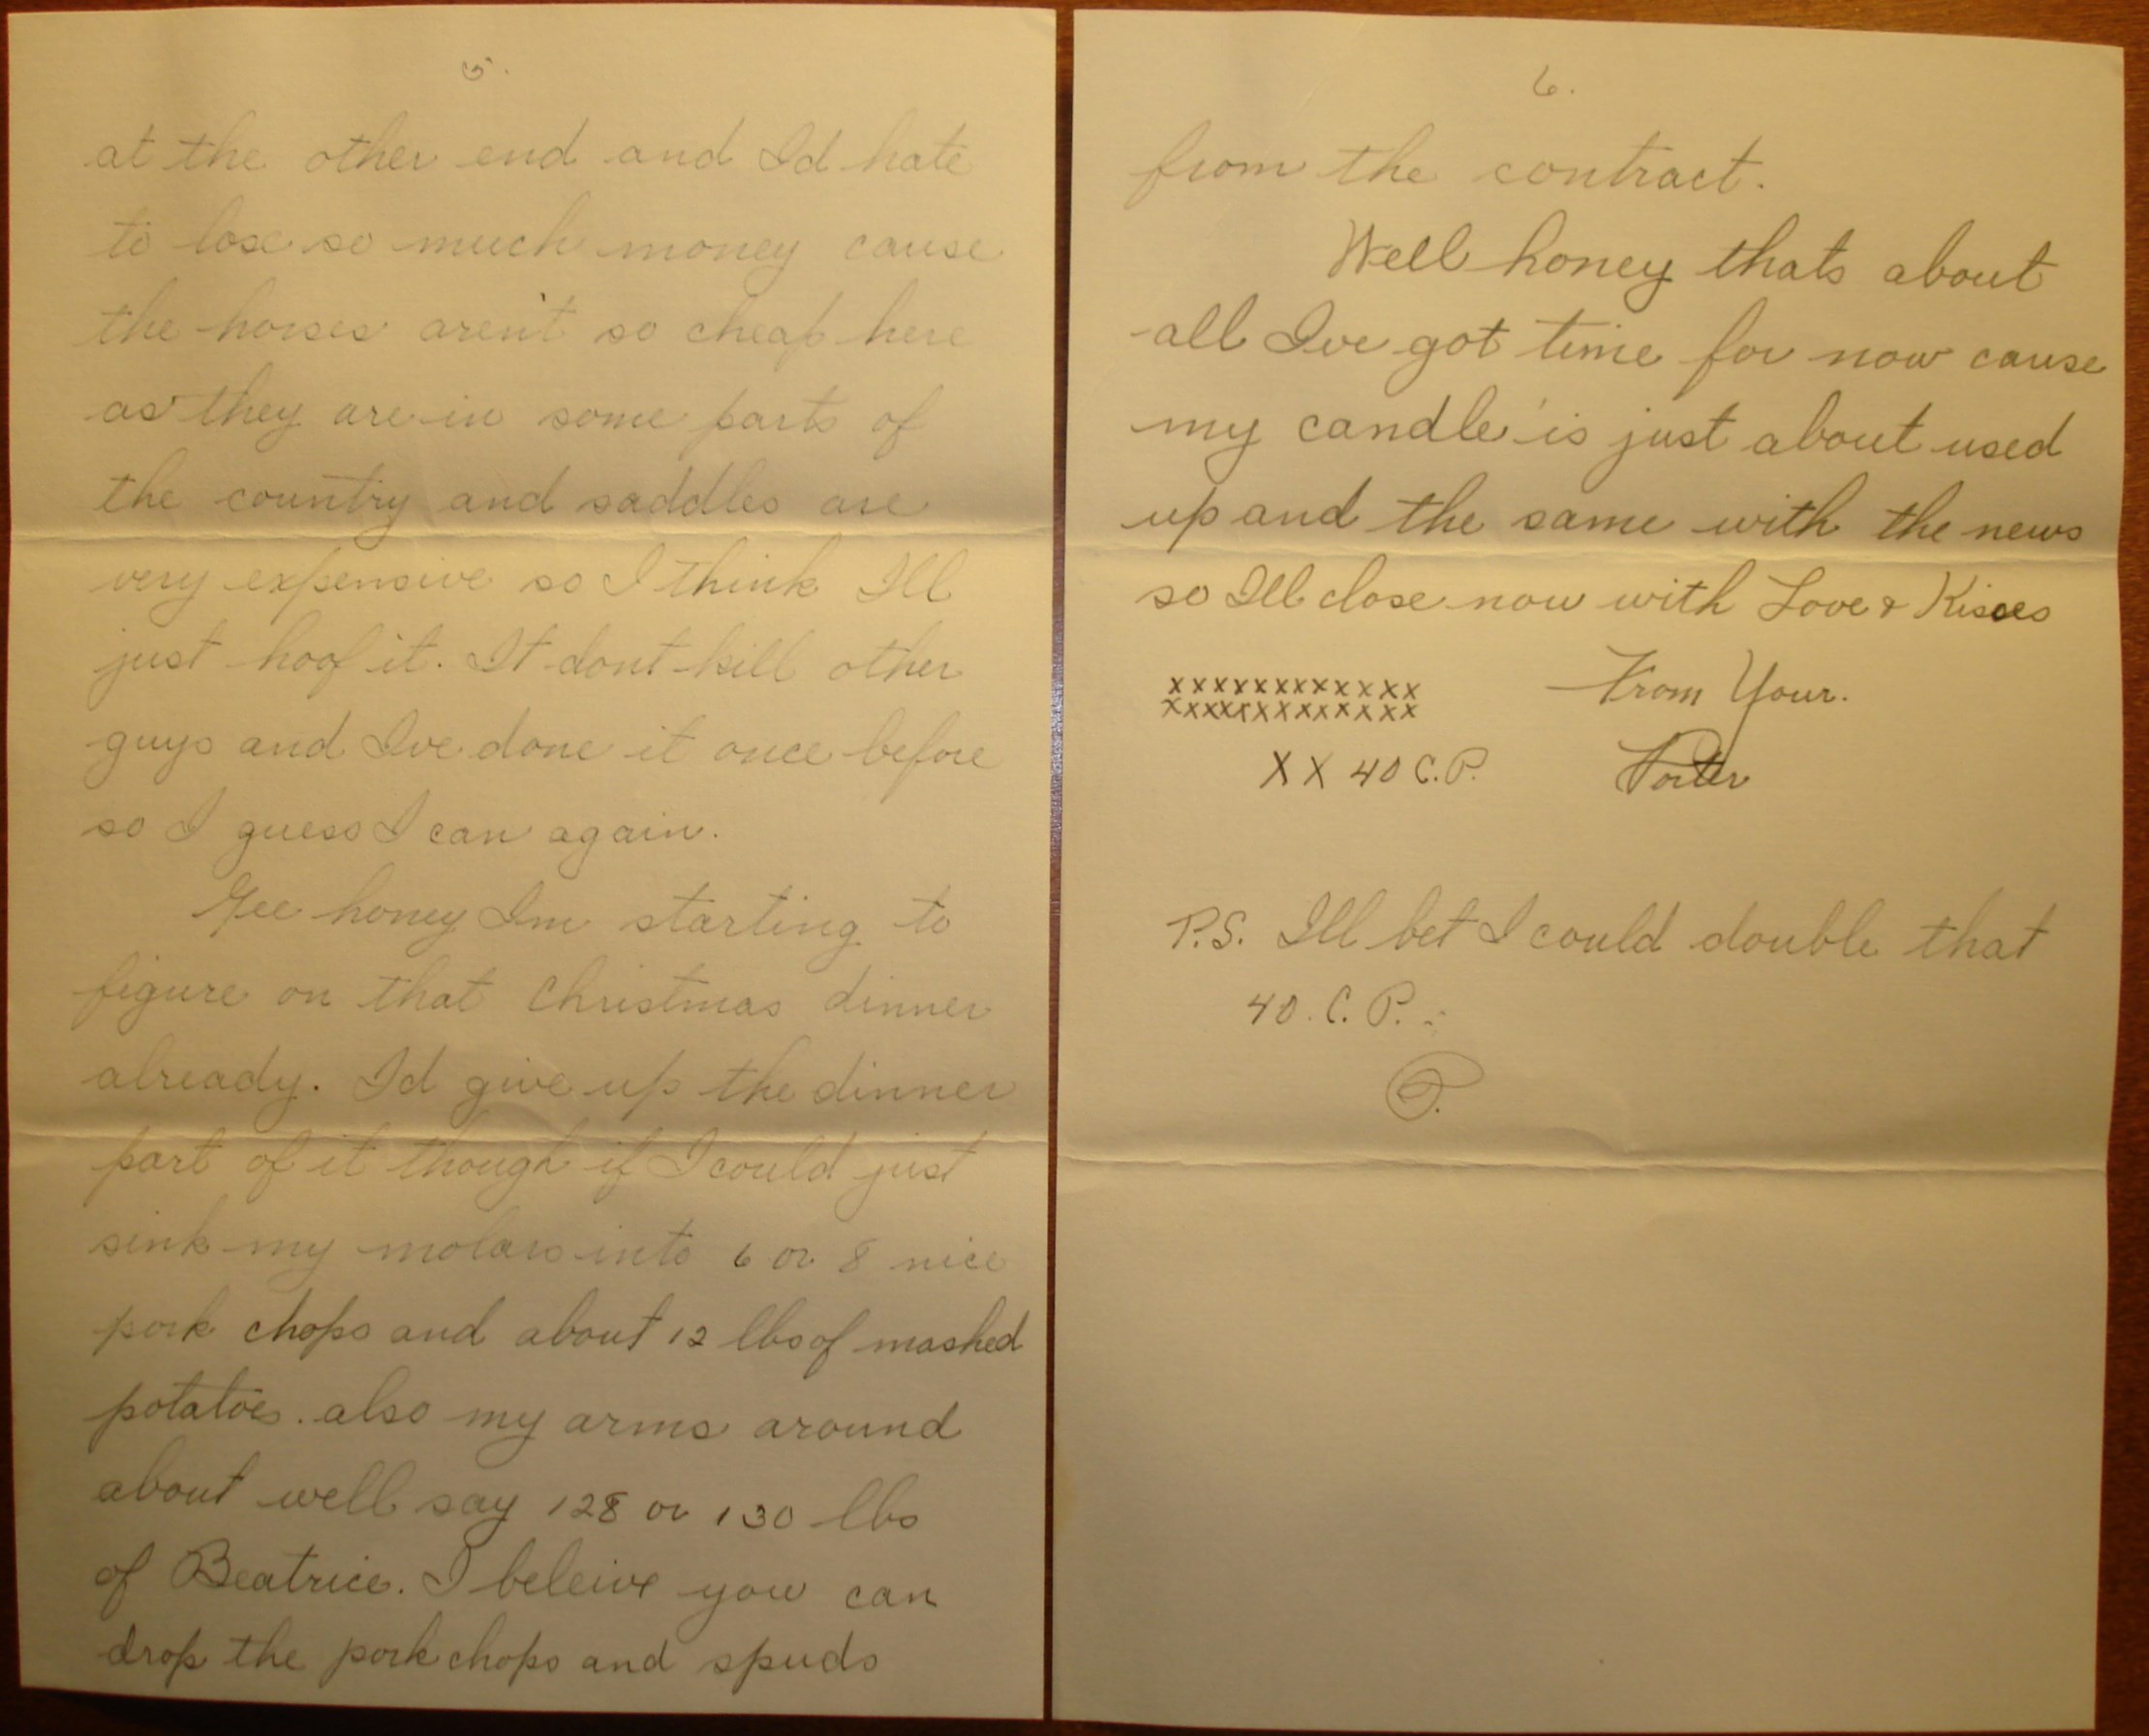 5.
at the other end and Id hate
to lose so much money cause
the horses aren't so cheap here
as they are in some parts of
the country and saddles are
very expensive so I think Ill
just hoof it. It dont kill other
guys and Ive done it once before
so I guess I can again.
Gee honey Im starting to
figure on that Christmas dinner
already. Id give up the dinner
part of it though if I could just
sink my molars into 6 or 8 nice
pork chops and about 12 lbs of mashed
potatoes. also my arms around
about well say 128 or 130 lbs
of Beatrice. I beleive you can
drop the pork chops and spuds
6.
from the contract.
Well honey thats about
all Ive got time for now cause
my candle is just about used
up and the same with the news
so Ill close now with Love & Kisses
xxxxxxxxxxxx From Your.
xxxxxxxxxxxxx
XX 40 C.P. Porter
P.S. Ill bet I could double that
40. C. P. -
P.